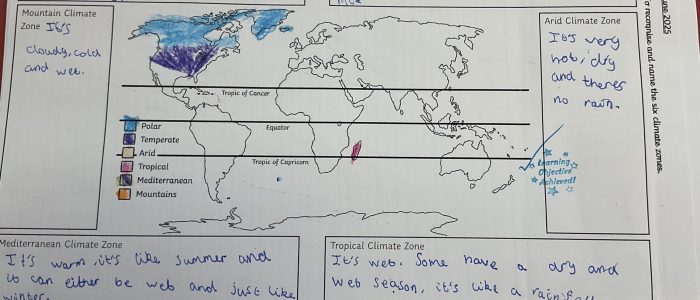 June 2025
To recognise and name the six climate zones.
Mountain Climate
Zone It's
cloudy, cold
and wet.
Arid Climate Zone
It's very
hot, dry
and theres
no rain.
Tropic of Cancer
Equator
Tropic of Capricorn
Polar
Temperate
Arid
Tropical
Mediterranean
Mountains
Learning
Objective
Achieved!
Mediterranean Climate Zone
It's warm, it's like summer and
it can either be wet and just like
winter.
Tropical Climate Zone
It's wet. Some have a dry and
wet season, it's like a